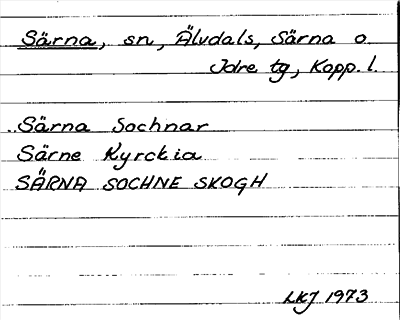 Särna, sn, Älvdals, Särna o.
Idre tg, Kopp. l.
Särna Sochnar
Särne Kyrckia
SÄRNA SOCHNE SKOGH
LKJ 1973